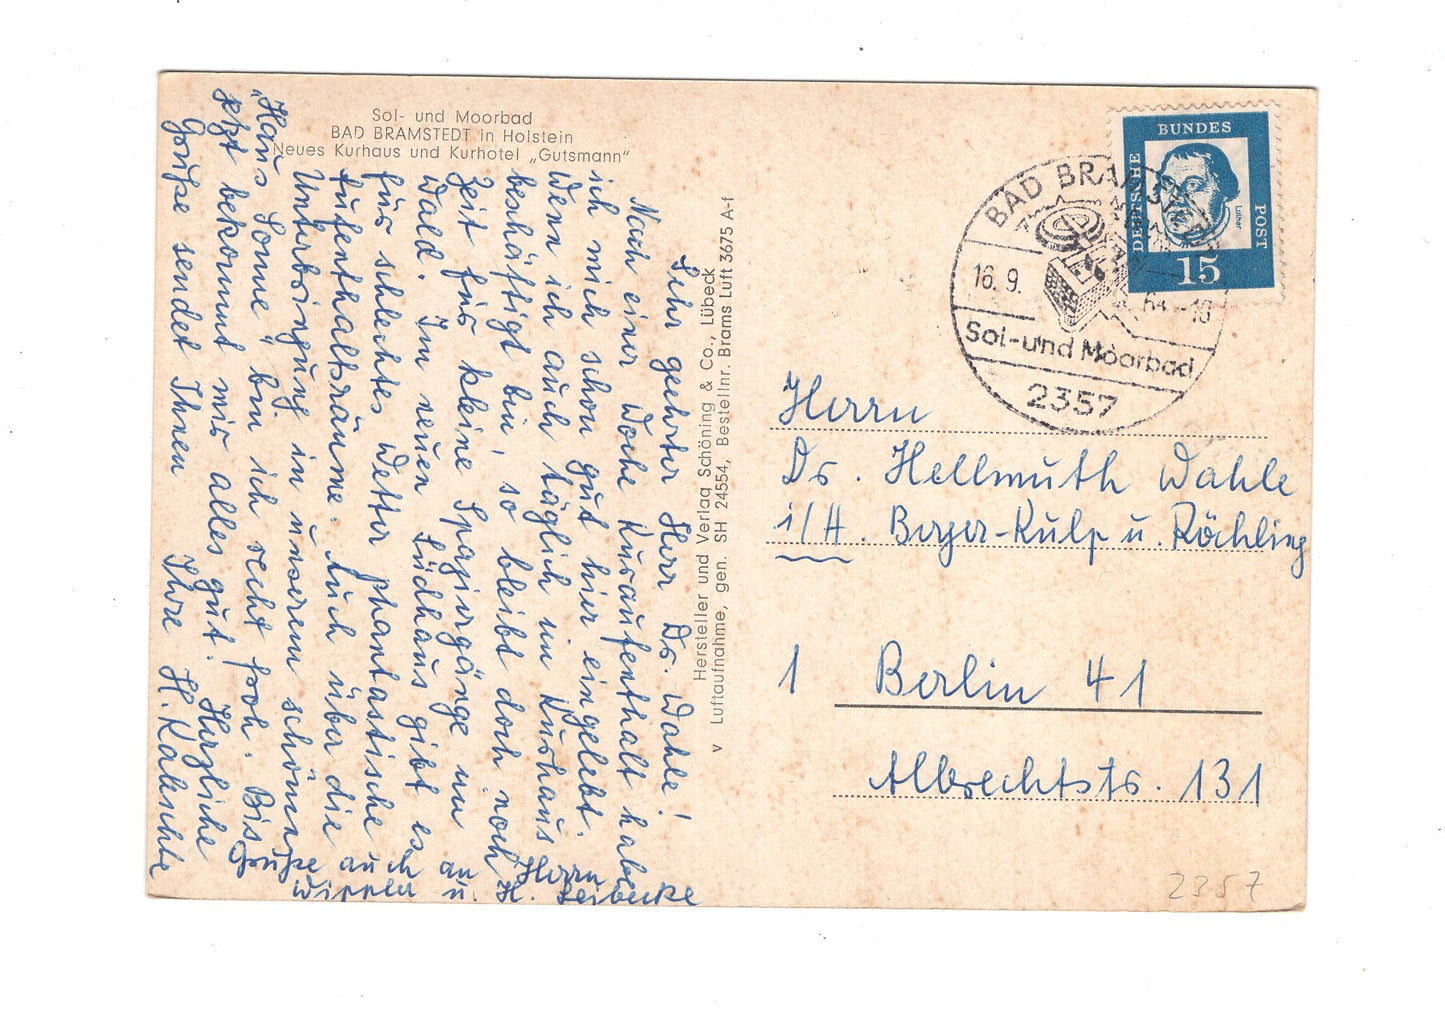 Sol- und Moorbad
BAD BRAMSTEDT in Holstein
Neues Kurhaus und Kurhotel „Gutsmann"
Sehr geehrter Herr Dr. Wahle!
Nach einer Woche Kuraufenthalt habe
ich mich schon gut hier eingelebt.
Wenn ich auch täglich im Kurhaus
beschäftigt bin, so bleibt doch noch
Zeit für kleine Spaziergänge im
Wald. Im neuen Südhaus gibt es
für schlechtes Wetter phantastische
Aufenthaltsräume. Auch über die
Unterbringung in unserem schönen
„Haus Sonne" bin ich recht froh. Bis
jetzt bekommt mir alles gut. Herzliche
Grüße sendet Ihnen Ihre H. Kalischke
Grüße auch an Herrn
Wippler u. H. Leibecke
Hersteller und Verlag Schöning & Co., Lübeck
v Luftaufnahme, gen. SH 24554, Bestellnr. Brams Luft 3675 A-f
DEUTSCHE BUNDES POST
Luther
15
BAD BRAMSTEDT
16. 9. 64 -18
Sol- und Moorbad
2357
Herrn
Dr. Hellmuth Wahle
i/H. Berger-Kulp u. Röchling
1 Berlin 41
Albrechtstr. 131
2357